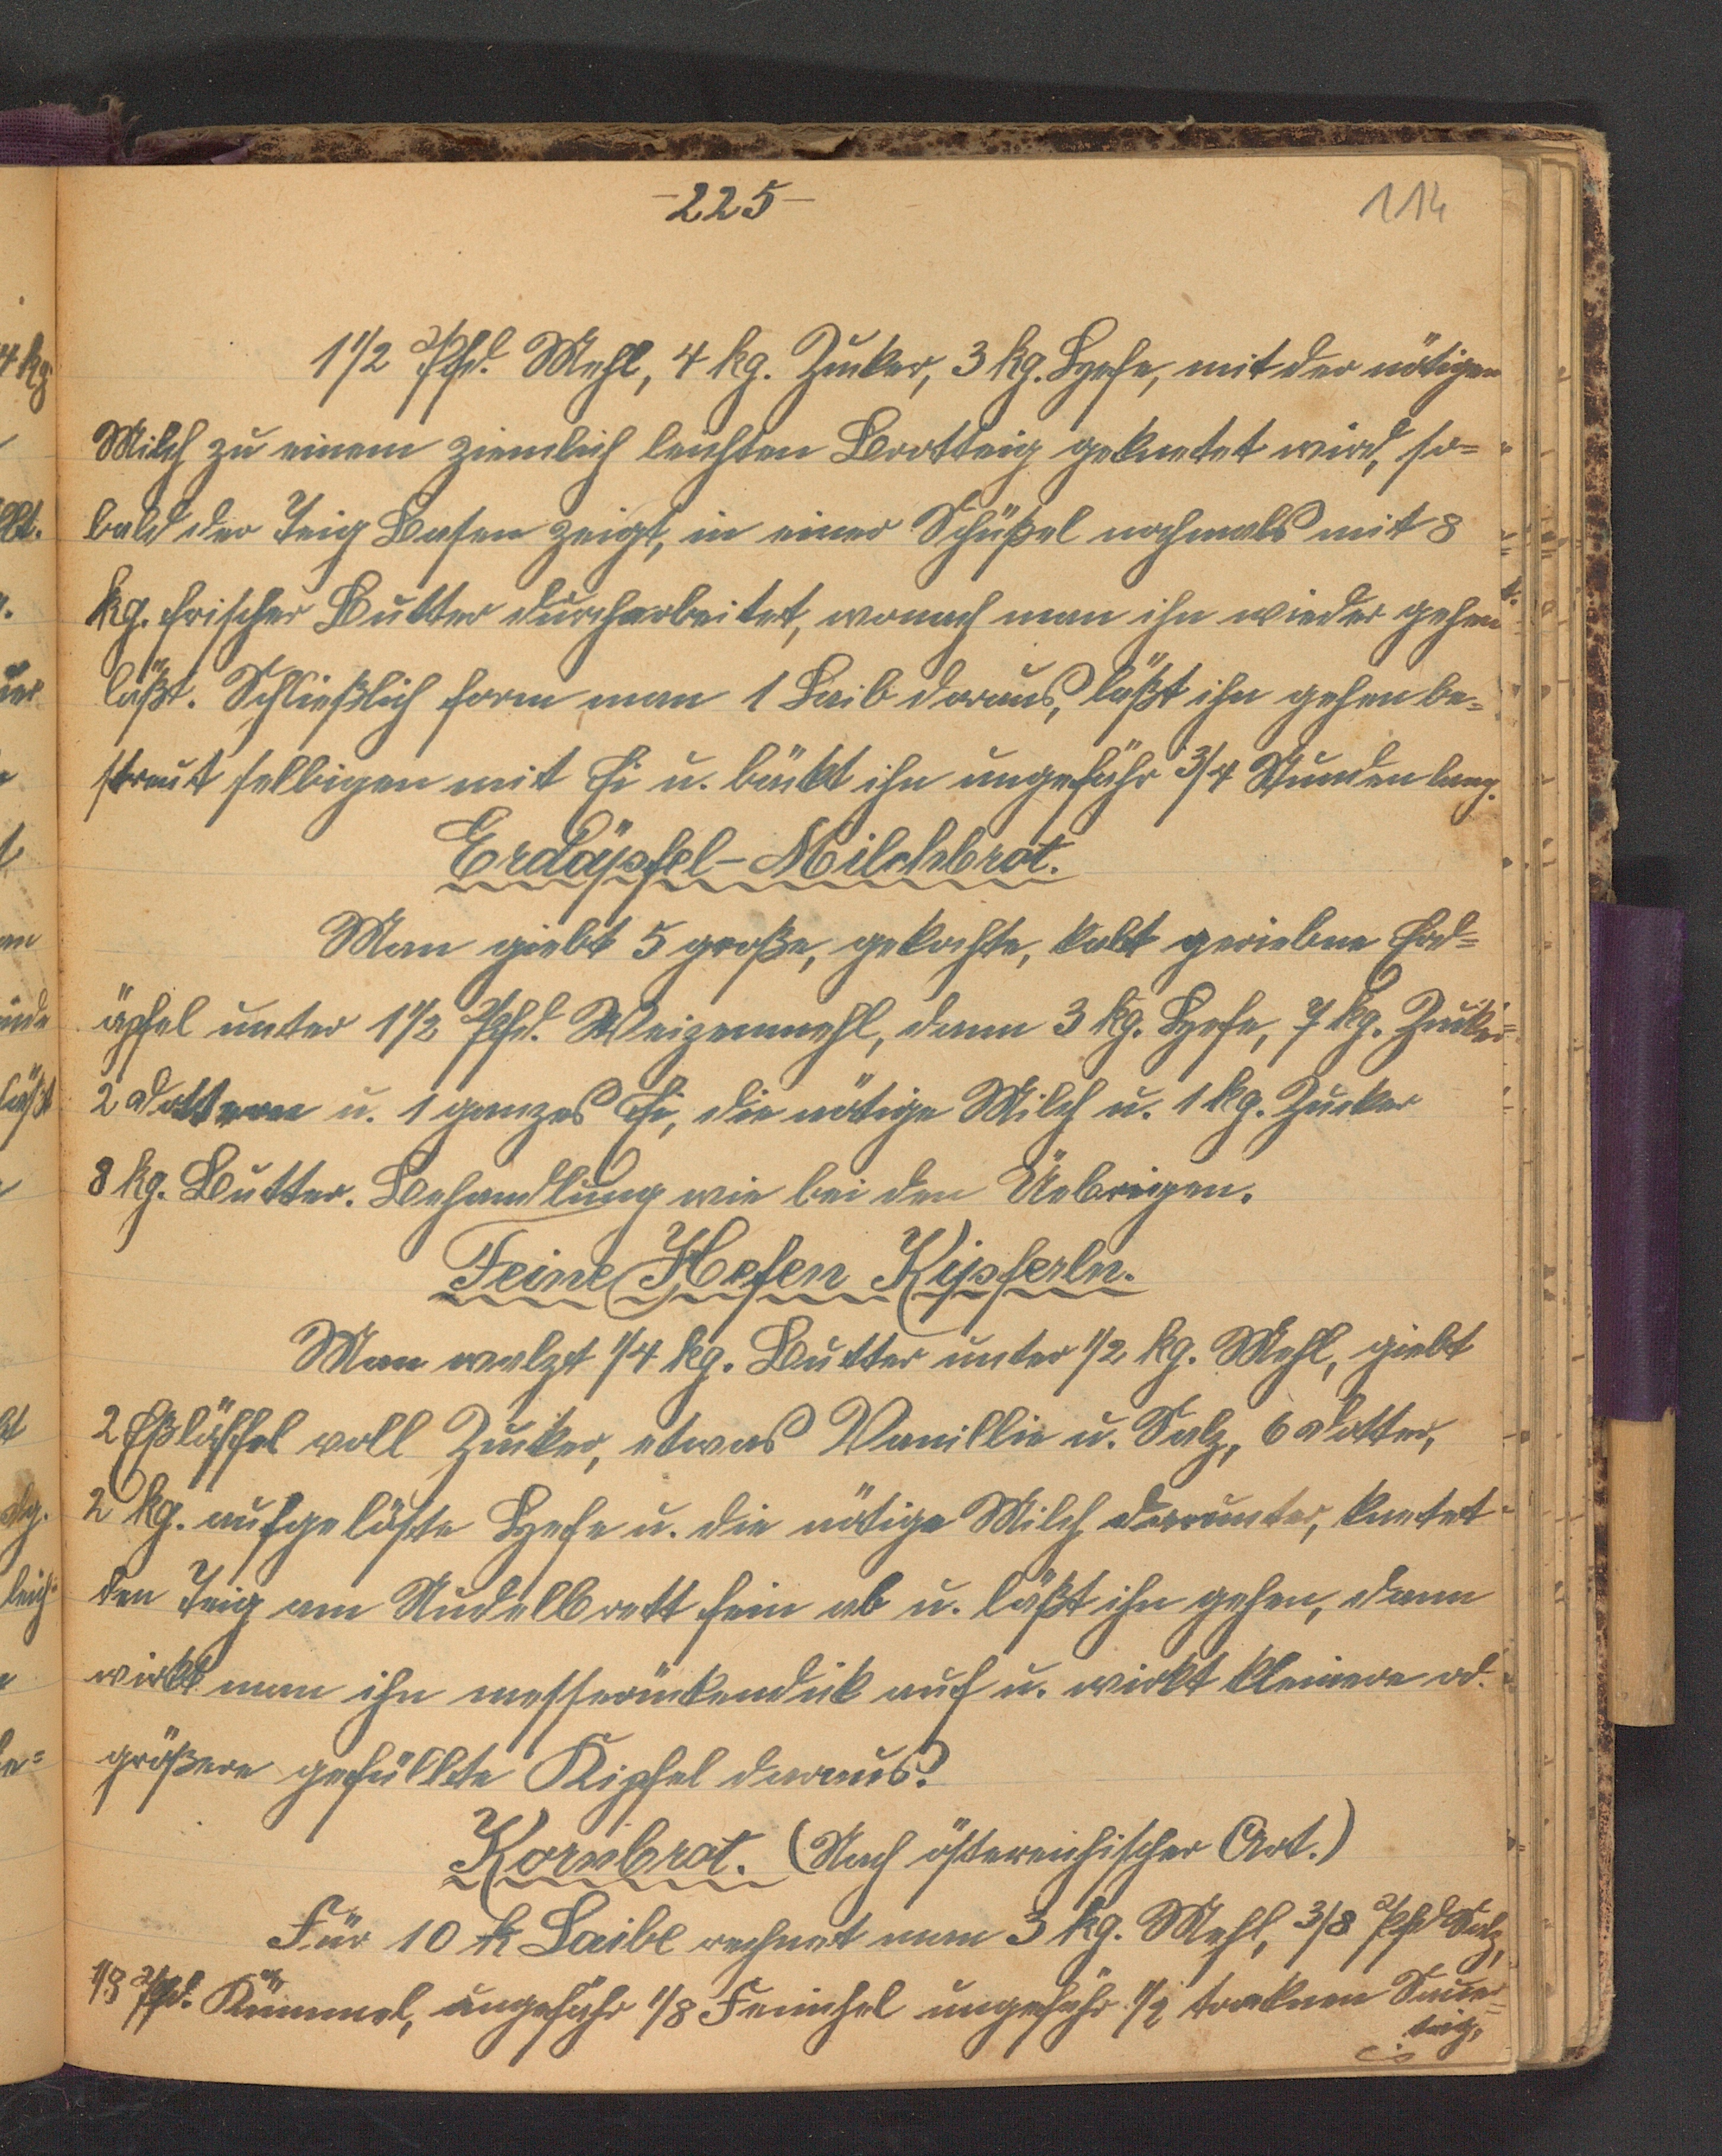 -225-
114
1 1/2 Pfd. Mehl, 4 kg. Zucker, 3 kg. Hefe, mit der nötigen
Milch zu einem ziemlich leichten Brotteig geknetet wird, so=
bald der Teig Blasen zeigt, in einer Schüßel nochmals mit 8
kg. frischer Butter durcharbeitet, wonach man ihn wieder gehen
läßt. Schließlich form man 1 Laib daraus, läßt ihn gehen be=
streut selbigen mit Ei u. bäckt ihn ungefähr 3/4 Stunden lang.
Erdäpfel-Milchbrot.
Man giebt 5 große, gekochte, kalt geriebne Erd=
äpfel unter 1 1/2 Pfd. Weizenmehl, dann 3 kg. Hefe, 7 kg. Zucker
2 Dottern u. 1 ganzes Ei, die nötige Milch u. 1 kg. Zucker
8 kg. Butter. Behandlung wie bei den Uebrigen.
Feine Hefen Kipferln.
Man walzt 1/4 kg. Butter unter 1/2 kg. Mehl, giebt
2 Eßlöffel voll Zucker, etwas Vanillie u. Salz, 6 Dotter,
2 kg. aufgelöste Hefe u. die nötige Milch darunter, knetet
den Teig am Nudelbrett fein ab u. läßt ihn gehen, dann
wirkt man ihn messerückendick auf u. wirkt kleinere od.
größere gefüllte Kipfel daraus.
Kornbrot. (Nach östereichischer Art.)
Für 10 k Laibe rechnet man 3 kg. Mehl, 3/8 Pfd Salz,
1/8 Pfd. Kümmel, ungefähr 1/8 Feinchel ungefähr 1/2 troknen Sauer=
teig,